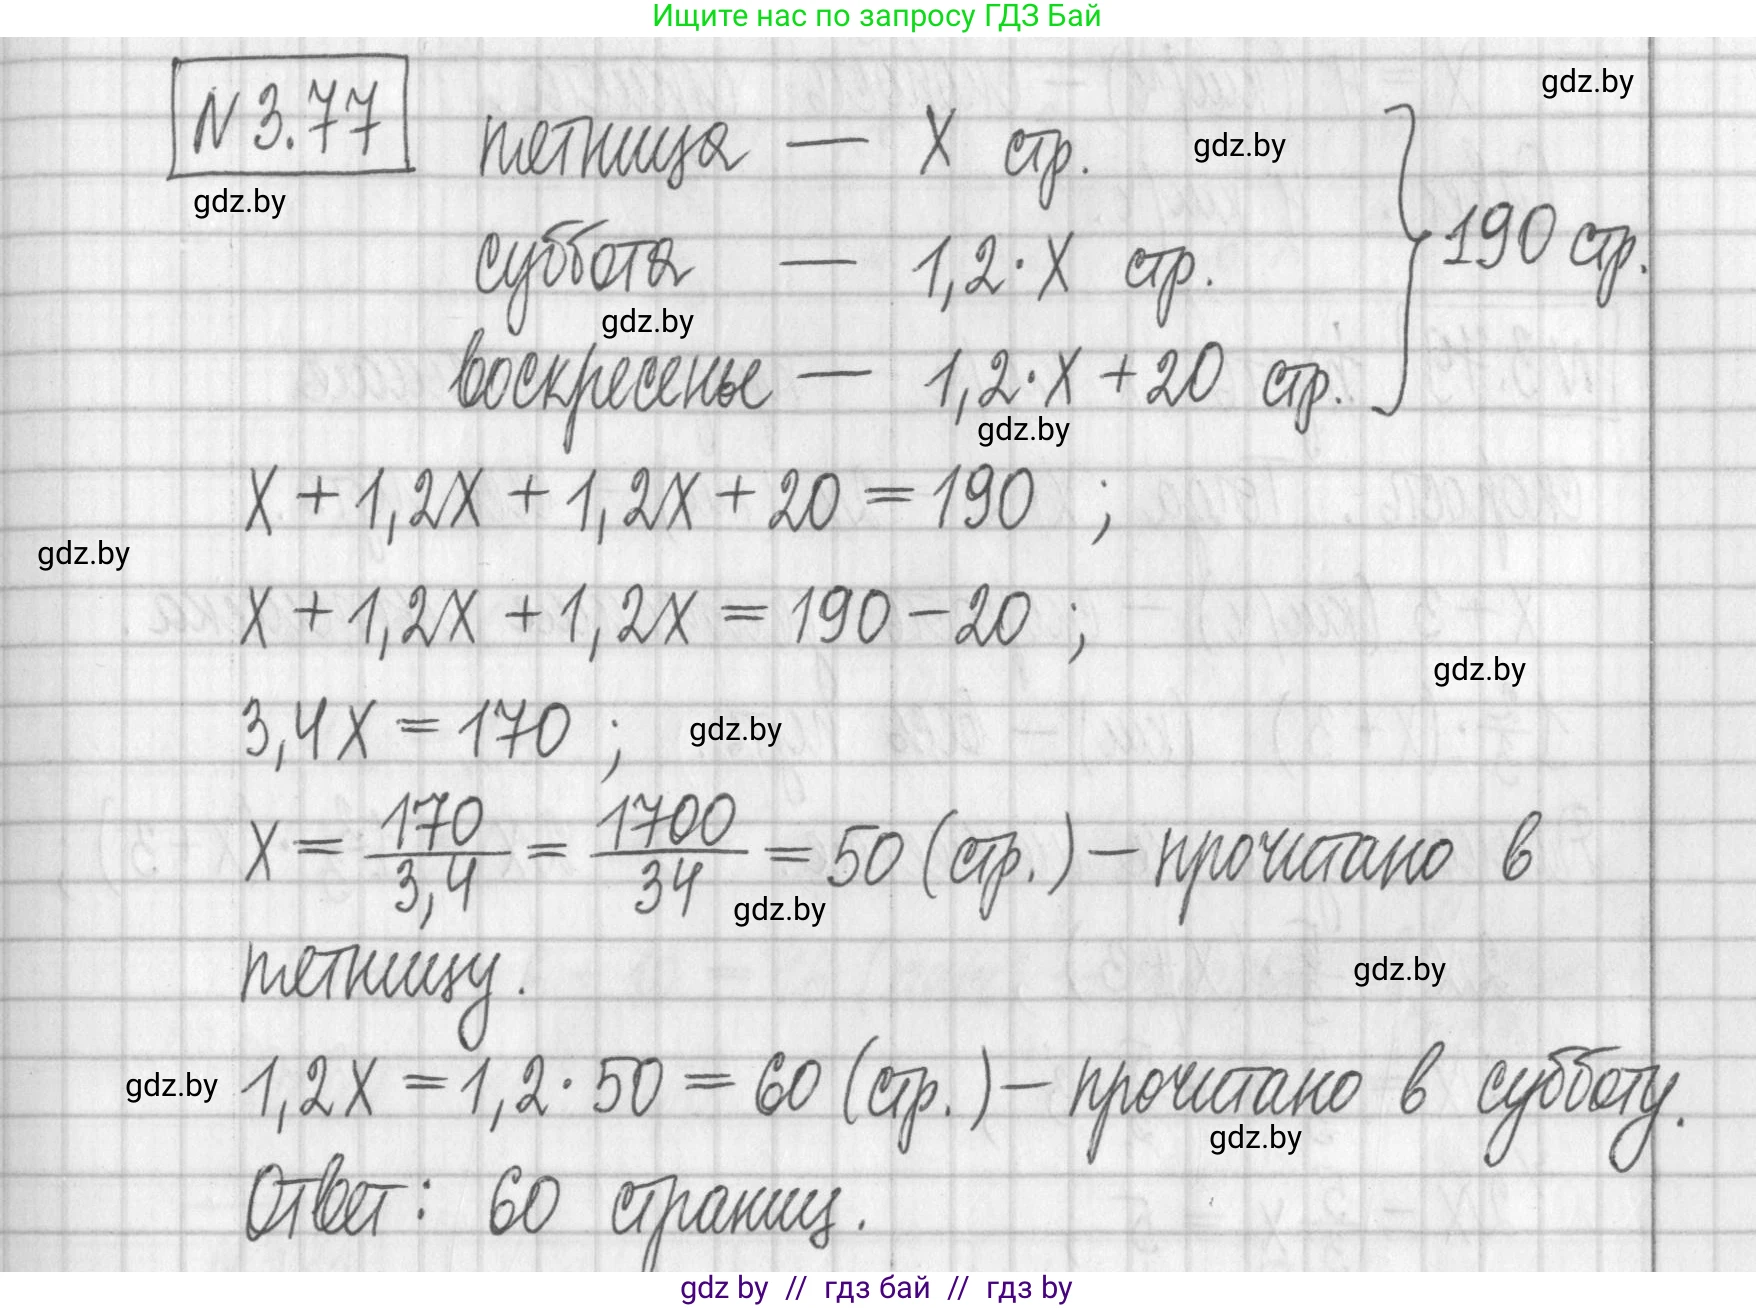 Ищите нас по запросу ГДЗ Бай
gdz.by
N 3.77 пятница — X стр.
gdz.by
gdz.by
суббота — 1,2·X стр. } 190 стр.
gdz.by
воскресенье — 1,2·X + 20 стр.
gdz.by
X + 1,2X + 1,2X + 20 = 190 ;
gdz.by
X + 1,2X + 1,2X = 190 − 20 ;
gdz.by
3,4X = 170 ; gdz.by
X = 170/3,4 = 1700/34 = 50 (стр.) — прочитано в
gdz.by
пятницу.
gdz.by
gdz.by 1,2X = 1,2·50 = 60 (стр.) — прочитано в субботу.
gdz.by
Ответ: 60 страниц.
gdz by // гдз бай // гдз by